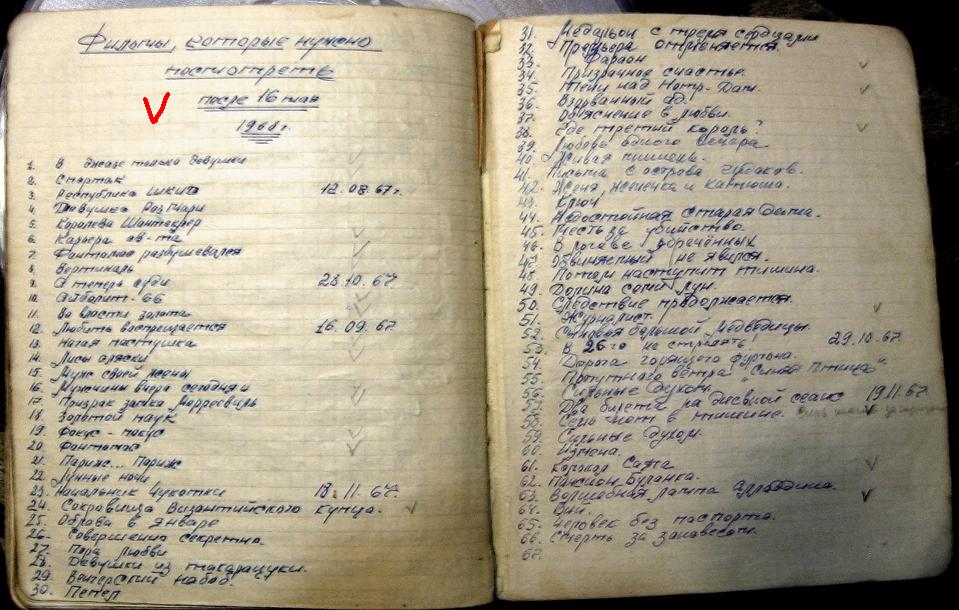 Фильмы, которые нужно
посмотреть
после 16 мая
196 г.
1. В джазе только девушки
2. Спартак
3. Республика Шкид 12.08.67г.
4. Девушка Розмари
5. Королева Шантеклер
6. Карьера
7. Фантомас разбушевался
8. Вертикаль
9. А теперь суди 23.10.67
10. Айболит-66
11. Во власти золота
12. Любить воспрещается 16.09.67
13. Нагая пастушка
14. Лисы аляски
15. Муж своей жены
16. Мужчины вчера сегодня и
17. Призрак замка Морресвиль
18. Золотой паук
19. Фокус-покус
20. Фантомас
21. Париж... Париж
22. Лунные ночи
23. Начальник Чукотки 18.11.67.
24. Сокровища Византийского купца.
25. Облава в январе
26. Совершенно секретно
27. Пора любви
28. Девушки из такарацуки.
29. Венгерский набоб.
30. Пепел
31. Медальон с тремя сердцами
32. Премьера отменяется.
33. Фараон
34. Призрачное счастье.
35. Тени над Нотр-Дам.
36. Взорванный ад.
37. Объяснение в любви.
38. Где третий король?
39. Любовь одного вечера
40. Живая мишень.
41. Письма с острова чудаков.
42. Женя, Женечка и Катюша.
43. Ключ
44. Недостойная старая дама.
45. Месть за убийство.
46. В логове обречённых
47. Обвиняемый не явился.
48. Потом наступит тишина.
49. Долина семи лун.
50. Следствие продолжается.
51. Журналист.
52. Сыновья большой Медведицы.
53. В 26го не стрелять! 29.10.67
54. Дорога горящего фургона.
55. Попутного ветра "Синяя птица"
56. Сильные духом.
57. Два билета на дневной сеанс 19.11.67
58. Семь нот в тишине.
59. Сильные духом.
60. Измена.
61. Каракал Санта
62. Пансион Буланка.
63. Волшебная лампа Алладина.
64. Вий.
65. Человек без паспорта.
66. Смерть за занавесом.
67.